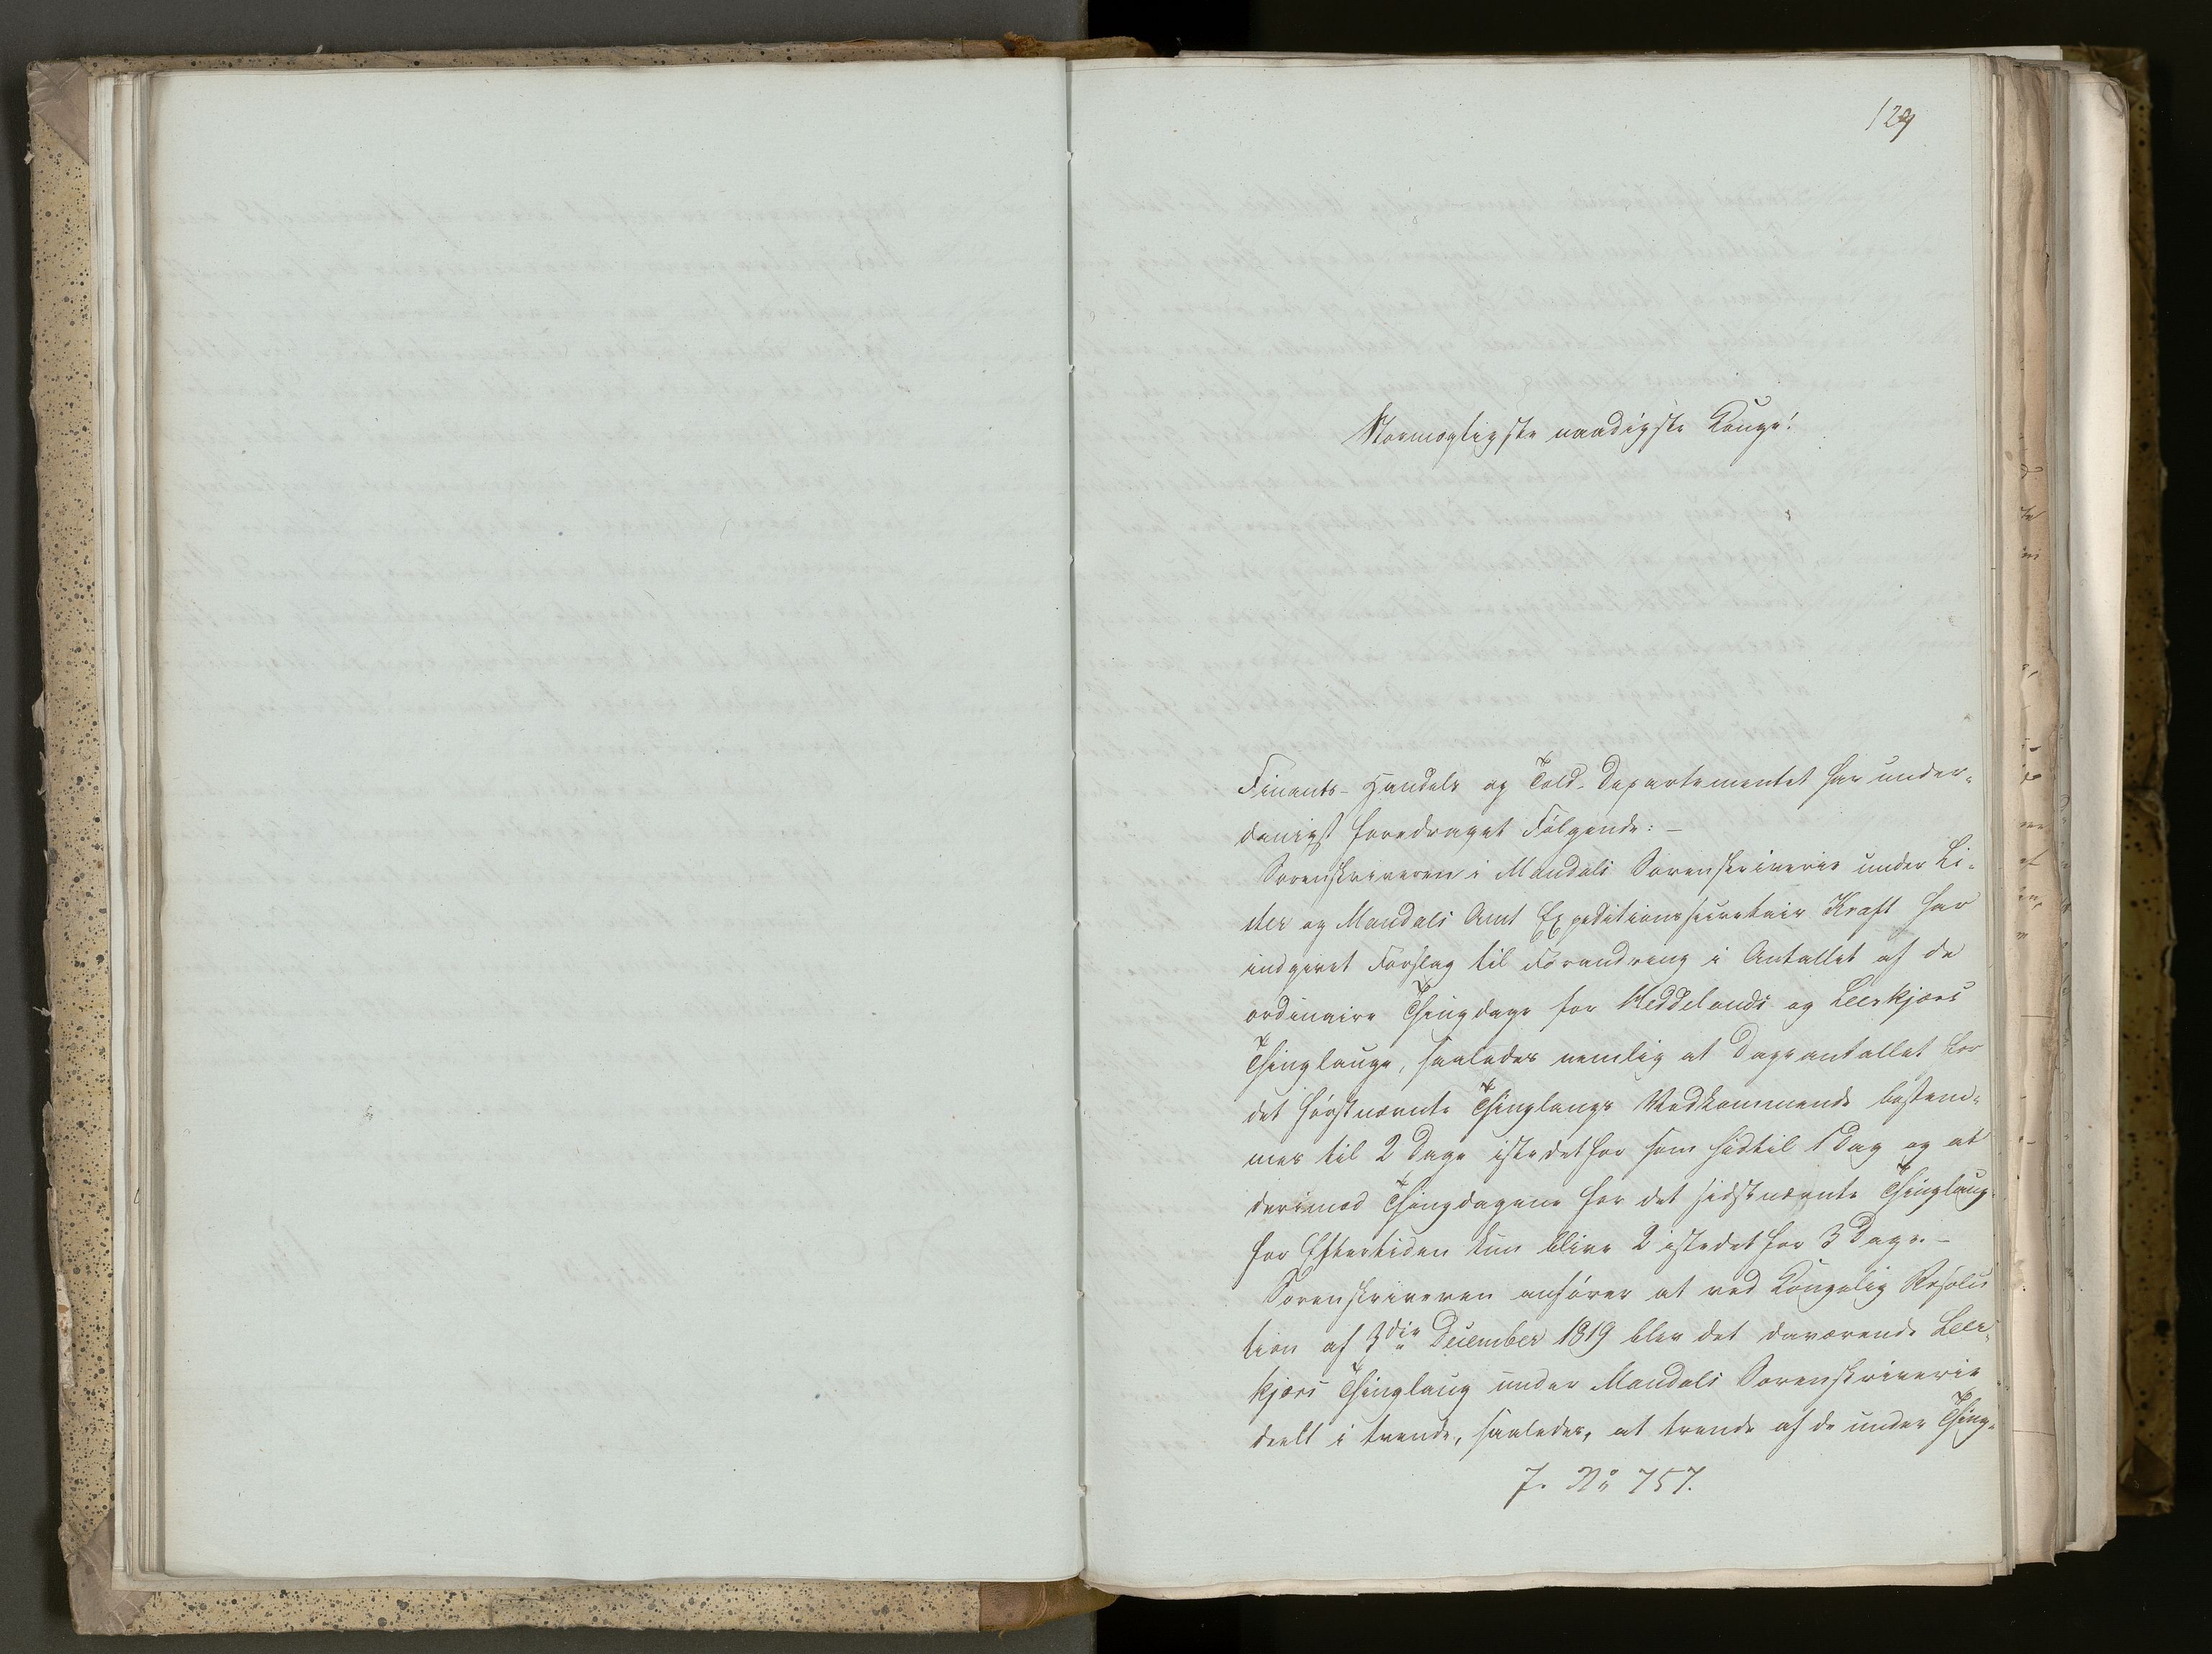 129
Stormægtigste naadigste Konge!
Finants- Handels og Told-Departementet har under-
danigst foredraget Følgende: -
Sorenskriveren i Mandals Sorenskriverie under Li-
ster og Mandals Amt Expeditionssecretair Kraft har
indgivet Forslag til Forandring i Antallet af de
ordinaire Thingdage for Haddelands og Leerkjærs
Thinglauge, saaledes nemlig at Dageantallet for
det førstnævnte Thinglaugs Vedkommende bestem-
mes til 2 Dage istedetfor som hidtil 1 Dag og at
derimod Thingdagene for det sidstnævnte Thinglaug
for Eftertiden kun blive 2 istedetfor 3 Dage. -
Sorenskriveren anfører at ved Kongelig Resolu
tion af 3die December 1819 blev det daværende Leer-
kjærs Thinglaug under Mandals Sorenskriverie
deelt i tvende, saaledes, at tvende af de under Thing-
J. No 757.